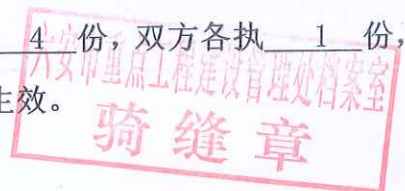 4 份，双方各执 1 份，
六安市重点工程建设管理处档案室
生效。
骑缝章